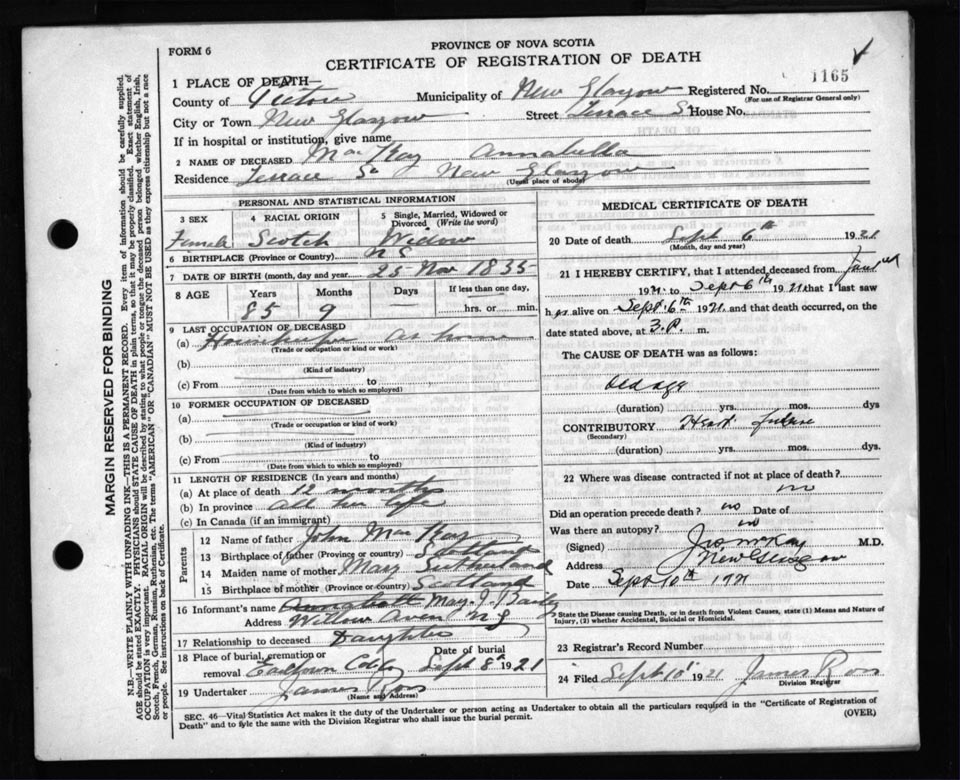 FORM 6
PROVINCE OF NOVA SCOTIA
CERTIFICATE OF REGISTRATION OF DEATH
1165
1 PLACE OF DEATH—
County of Pictou Municipality of New Glasgow Registered No.
(For use of Registrar General only)
City or Town New Glasgow Street Terrace St House No.
If in hospital or institution, give name
2 NAME OF DECEASED MacKay Annabella
Residence Terrace St New Glasgow
(Usual place of abode)
PERSONAL AND STATISTICAL INFORMATION
3 SEX 4 RACIAL ORIGIN 5 Single, Married, Widowed or Divorced (Write the word)
Female Scotch Widow
6 BIRTHPLACE (Province or Country) N S
7 DATE OF BIRTH (month, day and year) 25 Nov 1835
8 AGE Years Months Days If less than one day,
85 9 hrs. or min.
9 LAST OCCUPATION OF DECEASED
(a) Housekeeper At home
(Trade or occupation or kind or work)
(b)
(Kind of industry)
(c) From to
(Date from which to which so employed)
10 FORMER OCCUPATION OF DECEASED
(a)
(Trade or occupation or kind of work)
(b)
(Kind of industry)
(c) From to
(Date from which to which so employed)
11 LENGTH OF RESIDENCE (In years and months)
(a) At place of death 12 months
(b) In province All her life
(c) In Canada (if an immigrant)
Parents
12 Name of father John MacKay
13 Birthplace of father (Province or country) Scotland
14 Maiden name of mother Mary Sutherland
15 Birthplace of mother (Province or country) Scotland
16 Informant's name Mary J.
Address Willow Aven N S
17 Relationship to deceased Daughter
18 Place of burial, cremation or removal Date of burial
Sept 8th 1921
19 Undertaker James Ross
(Name and Address)
MEDICAL CERTIFICATE OF DEATH
20 Date of death Sept 6th 1921
(Month, day and year)
21 I HEREBY CERTIFY, that I attended deceased from
1921 to Sept 6th 1921 that I last saw
h er alive on Sept 6th 1921. and that death occurred, on the
date stated above, at 3.P. m.
The CAUSE OF DEATH was as follows:
Old age
(duration) yrs. mos. dys
CONTRIBUTORY Heart failure
(Secondary)
(duration) yrs. mos. dys.
22 Where was disease contracted if not at place of death?
Did an operation precede death? no Date of
Was there an autopsy? no
(Signed) Jno McKay M.D.
Address New Glasgow
Date Sept 10th 1921
State the Disease causing Death, or in death from Violent Causes, state (1) Means and Nature of Injury, (2) whether Accidental, Suicidal or Homicidal.
23 Registrar's Record Number
24 Filed Sept 10th 21 James Ross
Division Registrar
SEC. 46—Vital Statistics Act makes it the duty of the Undertaker or person acting as Undertaker to obtain all the particulars required in the "Certificate of Registration of
Death" and to file the same with the Division Registrar who shall issue the burial permit.
(OVER)
MARGIN RESERVED FOR BINDING
N.B.—WRITE PLAINLY WITH UNFADING INK—THIS IS A PERMANENT RECORD. Every item of information should be carefully supplied.
AGE should be stated EXACTLY. PHYSICIANS should STATE CAUSE OF DEATH in plain terms, so that it may be properly classified. Exact statement of
OCCUPATION is very important. RACIAL ORIGIN will be described by stating to what people or tongue the deceased person belonged whether English, Irish,
Scotch, French, German, Russian, Ruthenian, etc. The terms "AMERICAN" or "CANADIAN" MUST NOT BE USED as they express citizenship but not a race
or people. See instructions on back of Certificate.